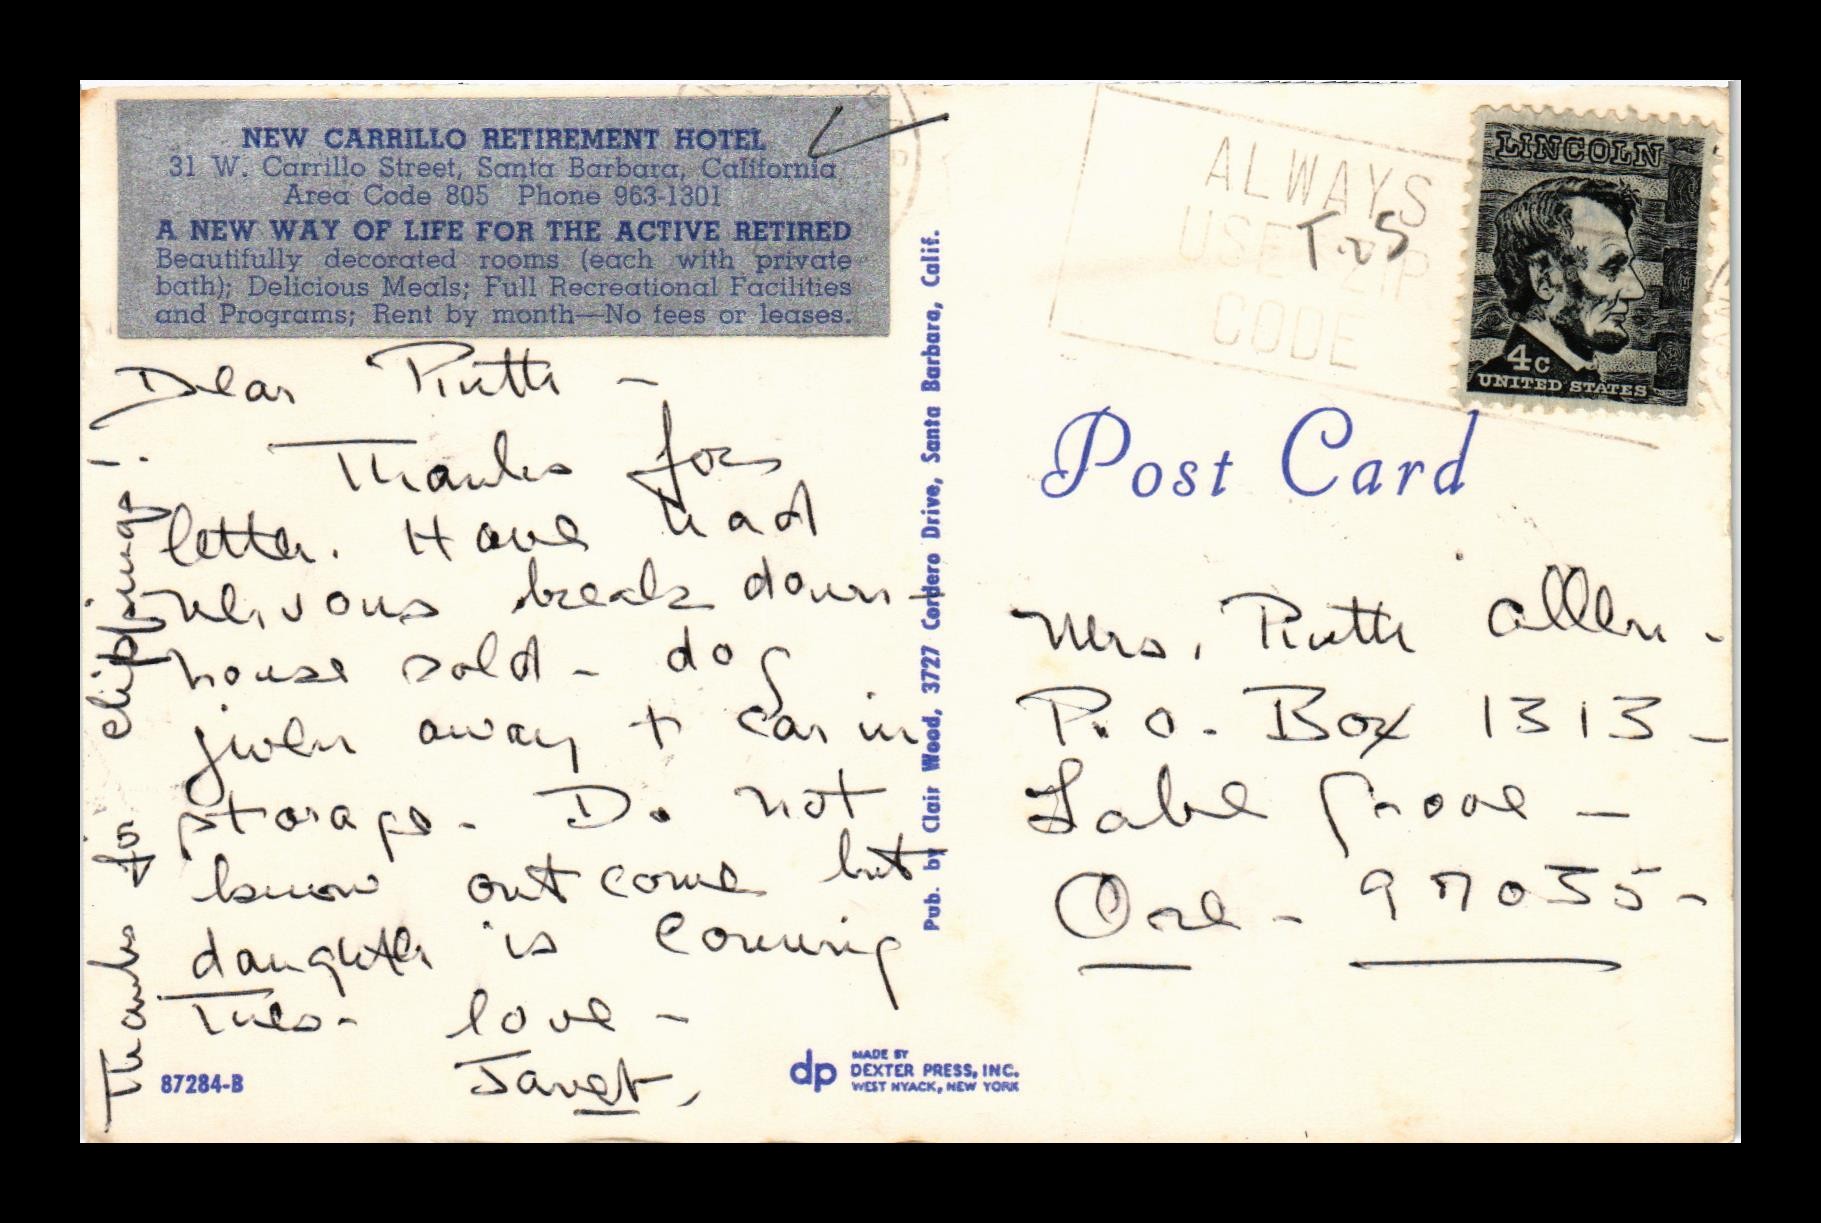 NEW CARRILLO RETIREMENT HOTEL
31 W. Carrillo Street, Santa Barbara, California
Area Code 805 Phone 963-1301
A NEW WAY OF LIFE FOR THE ACTIVE RETIRED
Beautifully decorated rooms (each with private
bath); Delicious Meals; Full Recreational Facilities
and Programs; Rent by month—No fees or leases.
Dear Ruth -
Thanks for
letter. Have had
nervous break down-
house sold - dog
given away + car in
storage. Do not
know outcome but
daughter is coming
Tues- love -
Janet,
Thanks for clippings!
87284-B
Pub. by Clair Wood, 3727 Cordero Drive, Santa Barbara, Calif.
dp
MADE BY
DEXTER PRESS, INC.
WEST NYACK, NEW YORK
ALWAYS
USE ZIP
CODE
LINCOLN
4c
UNITED STATES
Post Card
Mrs. Ruth Allen -
P.O. Box 1313 -
Lake Grove -
Ore - 97035 -